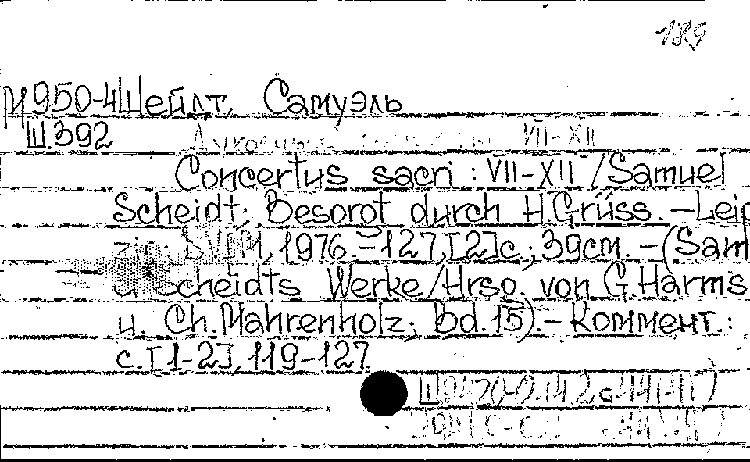 189
М950-4 Шейдт, Самуэль
Ш.392 Духовные VII-XII
Concertus sacri : VII-XII / Samuel
Scheidt; Besorgt durch H.Grüss. – Leip
zig: DVfM, 1976. – 127,[2]с.; 39см. – (Sam
u. Scheidts Werke / Hrsg. von G.Harms
u. Ch.Mahrenholz; Bd.15). – Коммент.:
с.[1-2], 119-127